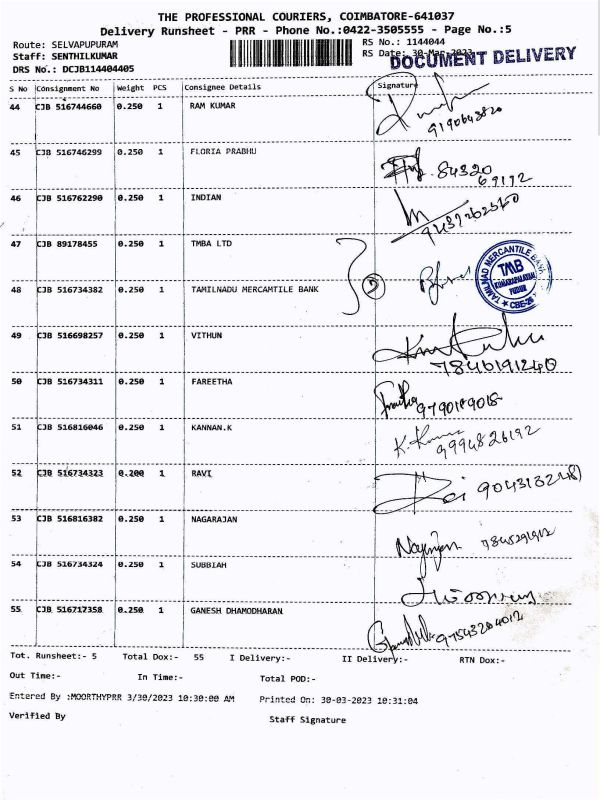 THE PROFESSIONAL COURIERS, COIMBATORE-641037
Delivery Runsheet - PRR - Phone No.:0422-3505555 - Page No.:5
Route: SELVAPUPURAM RS No.: 1144044
Staff: SENTHILKUMAR RS Date: 30-Mar-2023
DOCUMENT DELIVERY
DRS No.: DCJB114404405
S No Consignment No Weight PCS Consignee Details Signature
44 CJB 516744660 0.250 1 RAM KUMAR
45 CJB 516746299 0.250 1 FLORIA PRABHU
84320
69172
46 CJB 516762290 0.250 1 INDIAN
47 CJB 89178455 0.250 1 TMBA LTD
48 CJB 516734382 0.250 1 TAMILNADU MERCAMTILE BANK
2
TAMILNAD MERCANTILE BANK
TMB
CBE-26
49 CJB 516698257 0.250 1 VITHUN
7846191240
50 CJB 516734311 0.250 1 FAREETHA
51 CJB 516816046 0.250 1 KANNAN.K
K. Kannan
9994826192
52 CJB 516734323 0.200 1 RAVI
53 CJB 516816382 0.250 1 NAGARAJAN
54 CJB 516734324 0.250 1 SUBBIAH
55 CJB 516717358 0.250 1 GANESH DHAMODHARAN
Tot. Runsheet:- 5 Total Dox:- 55 I Delivery:- II Delivery:- RTN Dox:-
Out Time:- In Time:- Total POD:-
Entered By :MOORTHYPRR 3/30/2023 10:30:00 AM Printed On: 30-03-2023 10:31:04
Verified By Staff Signature